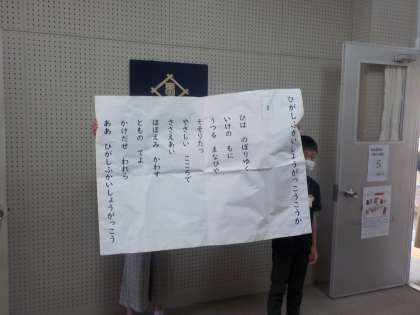 ひがしふかいしょうがっこうこうか
1
ひは のぼりゆく
いけの もに
うつる まなびや
そそりたつ
やさしい こころで
ささえあい
ほほえみ かわす
ともの てよ
かけだせ われら
ああ ひがしふかいしょうがっこう
5